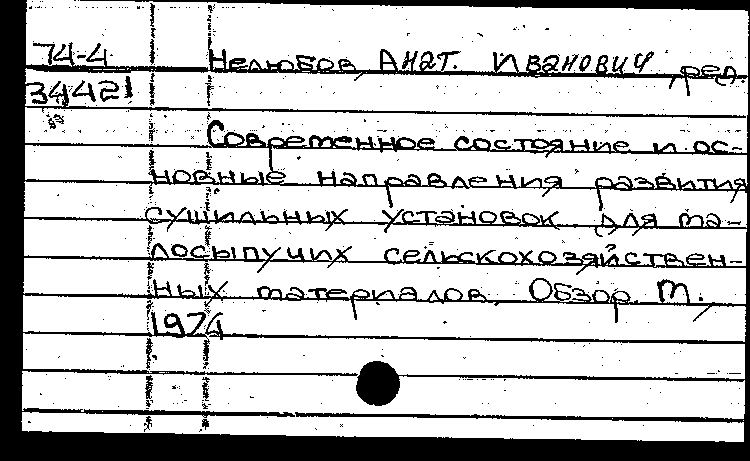 74-4 Нелюбов, Анат. Иванович, ред.
34421
Современное состояние и ос-
новные направления развития
сушильных установок для ма-
лосыпучих сельскохозяйствен-
ных материалов. Обзор. М.,
1974